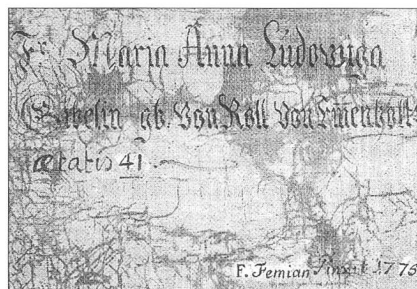 Fr. Maria Anna Ludowiga
Gibelin gb. Von Roll Von Emenholtz
ætatis 41.
F. Femian Pinxit 1775